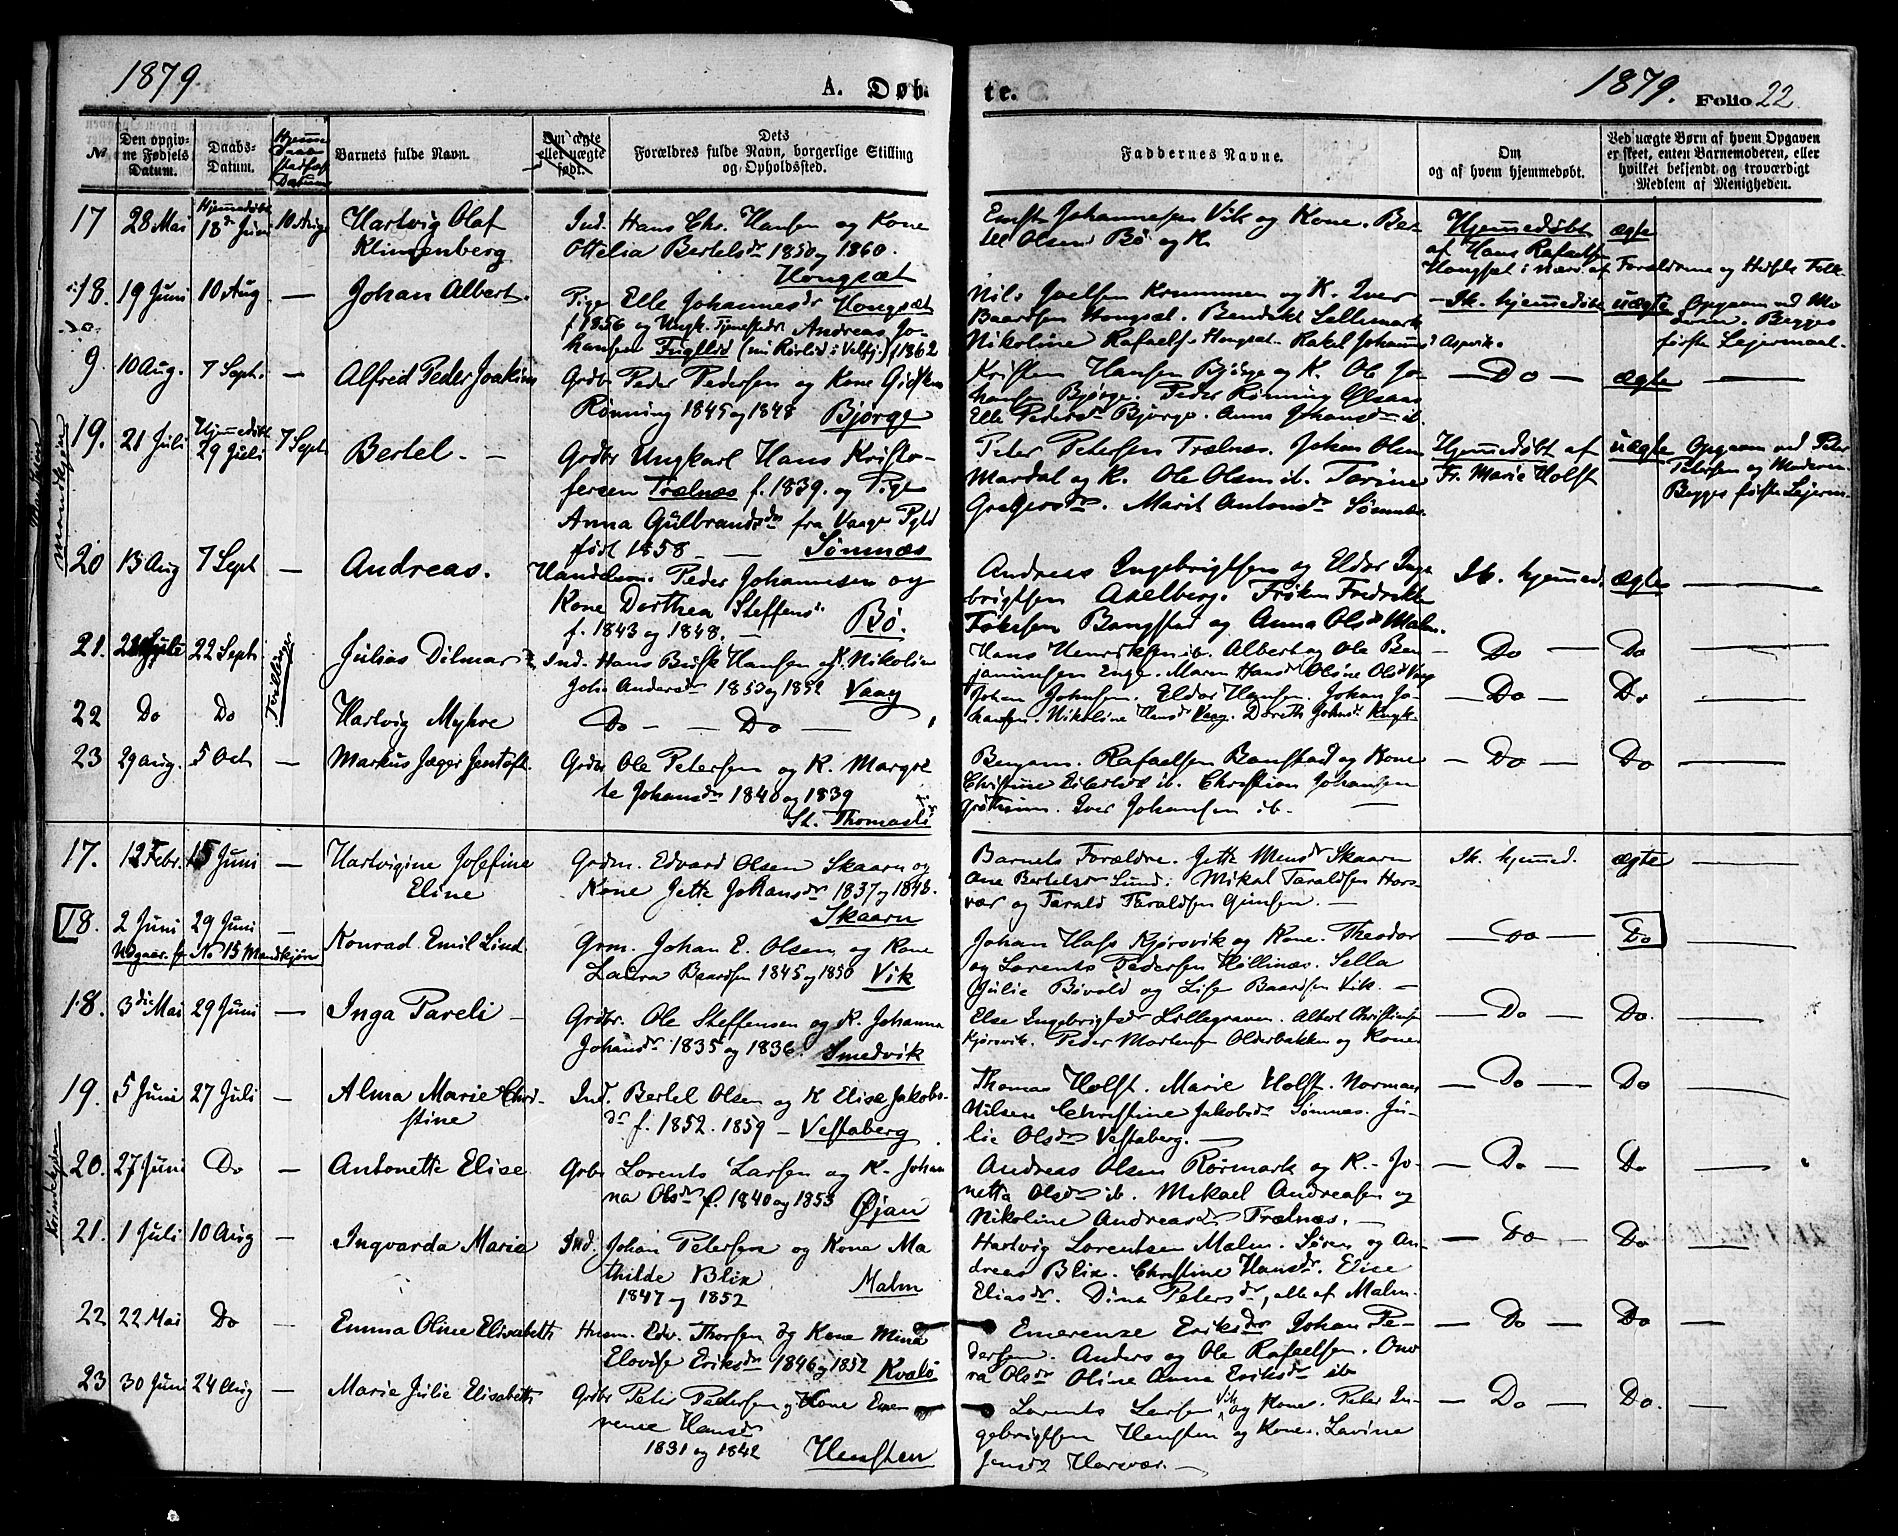 1879. A. Døb-
te. 1879. Folio 22.
No Den opgivne Fødsels Datum. Daabs-Datum. Hjemme Daabs Datum Barnets fulde Navn. Om ægte eller uægte født. Dets Forældres fulde Navn, borgerlige Stilling og Opholdssted.
Faddernes Navne. Om og af hvem hjemmedøbt. Ved uægte Børn af hvem Opgaven er skeet, enten Barnemoderen, eller hvilket bekjendt og troværdigt Medlem af Menigheden.
Mandkjøn
17 28 Mai Hjemmedøbt 18de Juni 10 Aug Hartvig Olaf Klingenberg
Ind. Hans Chr. Hansen og Kone
Ottelia Bertelsdr 1850 og 1860.
Hongsæt
Johannesen Vik og Kone. Ber-
tel Olsen Bø og K.
Hjemmedøbt af Hans Rafaelsen Hongsæt i nærv. af Forældrene og Folk
ægte
18. 19 Juni 10 Aug — Johan Albert.
Pige Elle Johannesdr Hongsæt
f 1856 og Ungk. Andreas Jo-
hansen (nu Rørlid i Velfj.) f 1862
Nils Joelsen og K. Iver
Baardsen Hongsæt. Bendikt
Nikoline Rafaels. Hongsæt. Rakel Johanns
Ik. hjemmedøbt uægte Opgaven ved Mo
deren. Begges
første Lejermaal.
9. 10 Aug. 7 Sept. — Alfred Peder Joakim
Grdbr Peder Pedersen og Kone
Rønning 1845 og 1848 Bjørge
Kristen Hansen Bjørge og K. Ole Jo-
hansen Bjørge. Peder Rønning
Elle Pedersdr Bjørge. Anna Johansdr ib.
— Do — ægte —
19. 21 Juli Hjemmedøbt 29 Juli 7 Sept Bertel. —
Grdbr Ungkarl Hans Kristo-
fersen Trælnæs f. 1839. og Pige
Anna Gulbrandsdr fra Vaage
født 1858 — Sømnæs
Peter Petersen Trælnæs. Johan Olsen
Mardal og K. Ole Olsen ib. Torine
Gregersdr. Marit Antonsdr Sømnæs
Hjemmedøbt af
Fr. Marie Holst
uægte Opgaven ved Peter
Petersen og Moderen
Begges første Lejerm.
20 13 Aug 7 Sept — Andreas.
Handelsm. Peder Johannesen og
Kone Dorthea Steffens.
f. 1843 og 1848. — Bø.
Andreas Ingebrigtsen og Eldor Inge
brigtsen Axelberg. Frøken Fredrikke
Bangstad og Anna Olsdr Malm.
Ik. hjemmed. ægte —
21. Juli 22 Sept Tvillinge Julius Dilmar
Ind. Hans Hansen og K. Nikolin
Joh. Andersdr 1853 og 1852 Vaag
Hans Henriksen ib. Albert og Ole Ben
jaminsen Enge. Maren Hansdr Oline Olsdr Vaag
— Do — Do
22 Do Do Hartvig Myhre
Do — — Do —
Johan Johnsen. Eldor Hansen. Johan Jo-
hansen. Nikoline Hansdr Vaag. Dorth. Johansdr
— Do — Do
23 29 Aug. 5 Oct — Markus Jæger Jentoft
Grdbr Ole Petersen og K. Margre
te Johansdr 1840 og 1839
St. Thomasli
Benjam. Rafaelsen Banstad og Kone
Christine ib. Christian Johansen
Grøttheim. Iver Johansen ib.
— Do — Do —
Kvindekjøn
17. 12 Febr. 15 Juni — Hartvigine Josefine
Eline
Grdm. Edvard Olsen Skaarn og
Kone Jette Johansdr 1837 og 1843.
Skaarn
Barnets Forældre. Jette Mensdr Skaarn
Ane Bertelsdr Lund. Mikal Taraldsen Hors-
vær og Tarald Taraldsen
Ik. hjemmed. ægte —
18. 2 Juni 29 Juni — Konrad Emil Lind
Udgaar. for No 15 Mandkjøn
Grm. Johan E. Olsen og Kone
Laura Baardsen 1845 og 1850 Vik
Johan Hass Kjørsvik og Kone. Theodor
og Lorents Pedersen Hellinæs. Sella
Julie Bøvold og Lise Baardsen Vik. —
— Do — Do —
18. 3die Mai 29 Juni — Inga Pareli —
Grdbr. Ole Steffensen og K. Johanna
Johansdr 1835 og 1836. Smedvik
Else Ingebrigtsdr Lillegraven. Albert Christiansen
Kjørsvik. Peder Mortensen Olderbakken og Kone
— Do — Do. —
19. 5 Juni 27 Juli — Alma Marie Chri-
stine
Ind. Bertel Olsen og K Elise Jakobs-
dr f. 1852. 1859 — Vestaberg
Thomas Holst. Marie Holst. Norman
Nilsen Christine Jakobsdr Sømnæs. Ju-
lie Olsdr Vestaberg. —
— Do — Do —
20. 27 Juni Do — Antonette Elise
Grbr Lorents Larsen og K. Johan
na Olsdr f. 1840 og 1853 Øjan
Andreas Olsen Rørmark og K. Jo-
netta Olsdr ib. Mikael Andreasen og
Nikoline Andreasdr Trælnæs. —
— Do — Do —
21. 1 Juli 10 Aug — Ingvarda Marie
Ind. Johan Petersen og Kone Ma
thilde Blix Malm
1847 og 1852
Hartvig Lorentsen Malm. Søren og An-
dreas Blix. Christine Hansdr. Elise
Eliasdr. Dina Petersdr, alle af Malm.
— Do — Do —
22 22 Mai Do — Emma Oline Elisabeth
Husm. Edv. Thorsen og Kone Mina
Elovise Eriksdr 1846 og 1852 Kvalø
Emerense Eriksdr Johan Pe-
dersen. Anders og Ole Rafaelsen.
Olsdr Oline Anna Eriksdr ib
— Do — Do —
23 30 Juni 24 Aug — Marie Julie Elisabeth
Grdbr Peter Pedersen og Kone Eme
rense Hansdr
1831 og 1842 Hensten
Lorents Larsen Vik og Kone. Peter In-
gebrigtsen Hensten og Kone. Lavine
Jensdr Horsvær. —
— Do — Do. —